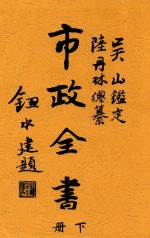 吴山鑑定
陸丹林總纂
市政全書
鈕永建題
下册